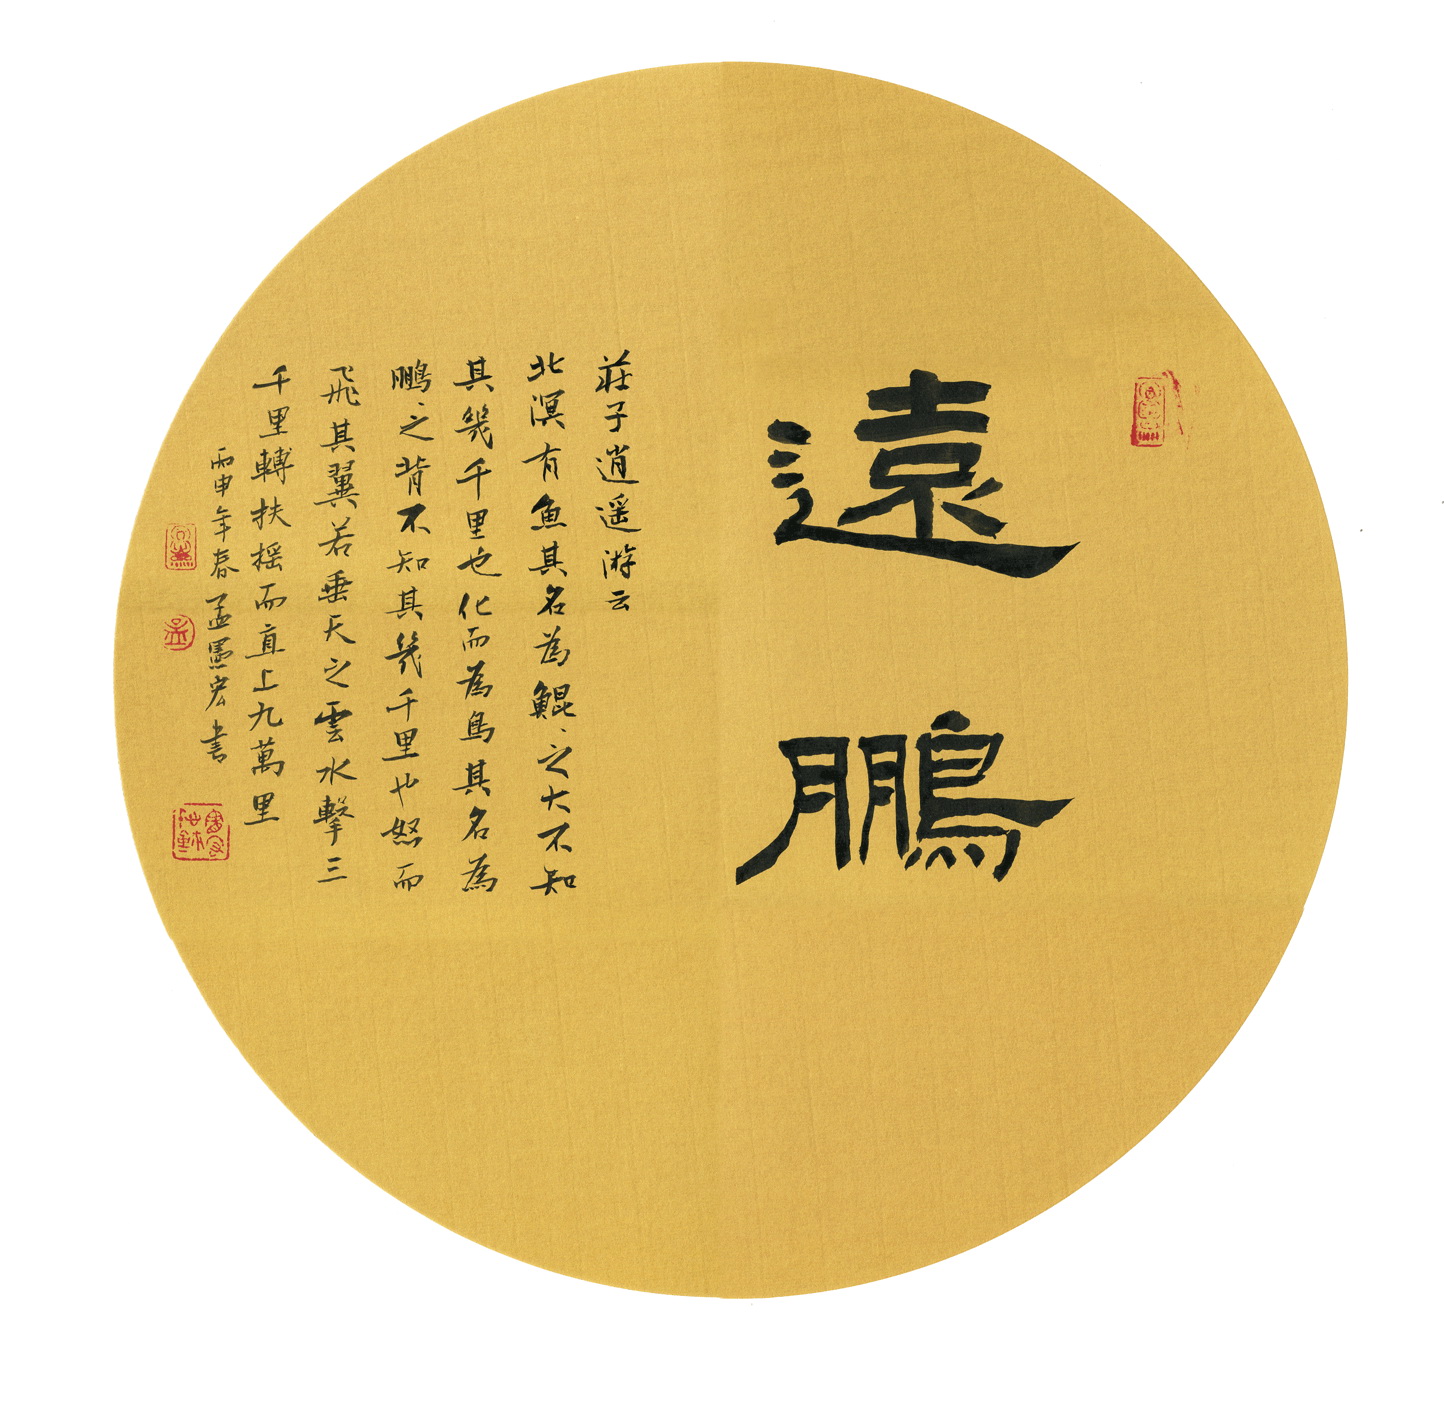 遠鵬
莊子逍遥游云
北溟有魚其名為鯤〻之大不知
其幾千里也化而為鳥其名為
鵬〻之背不知其幾千里也怒而
飛其翼若垂天之雲水擊三
千里轉扶摇而直上九萬里
丙申年春孟憲宏書
孟